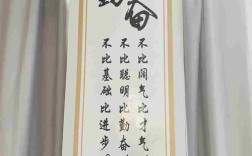 奋
不比阔气比才气
不比聪明比勤奋
不比基础比进步